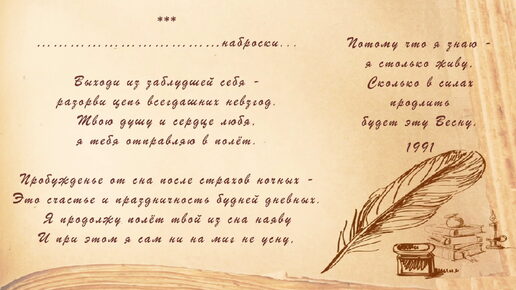 ***
……………………………наброски...
Выходи из заблудшей себя -
разорви цепь всегдашних невзгод.
Твою душу и сердце любя,
я тебя отправляю в полёт.
Пробужденье от сна после страхов ночных -
Это счастье и праздничность будней дневных.
Я продолжу полёт твой из сна наяву
И при этом я сам ни на миг не усну,
Потому что я знаю -
я столько живу,
Сколько в силах
продлить
будет эту Весну.
1991